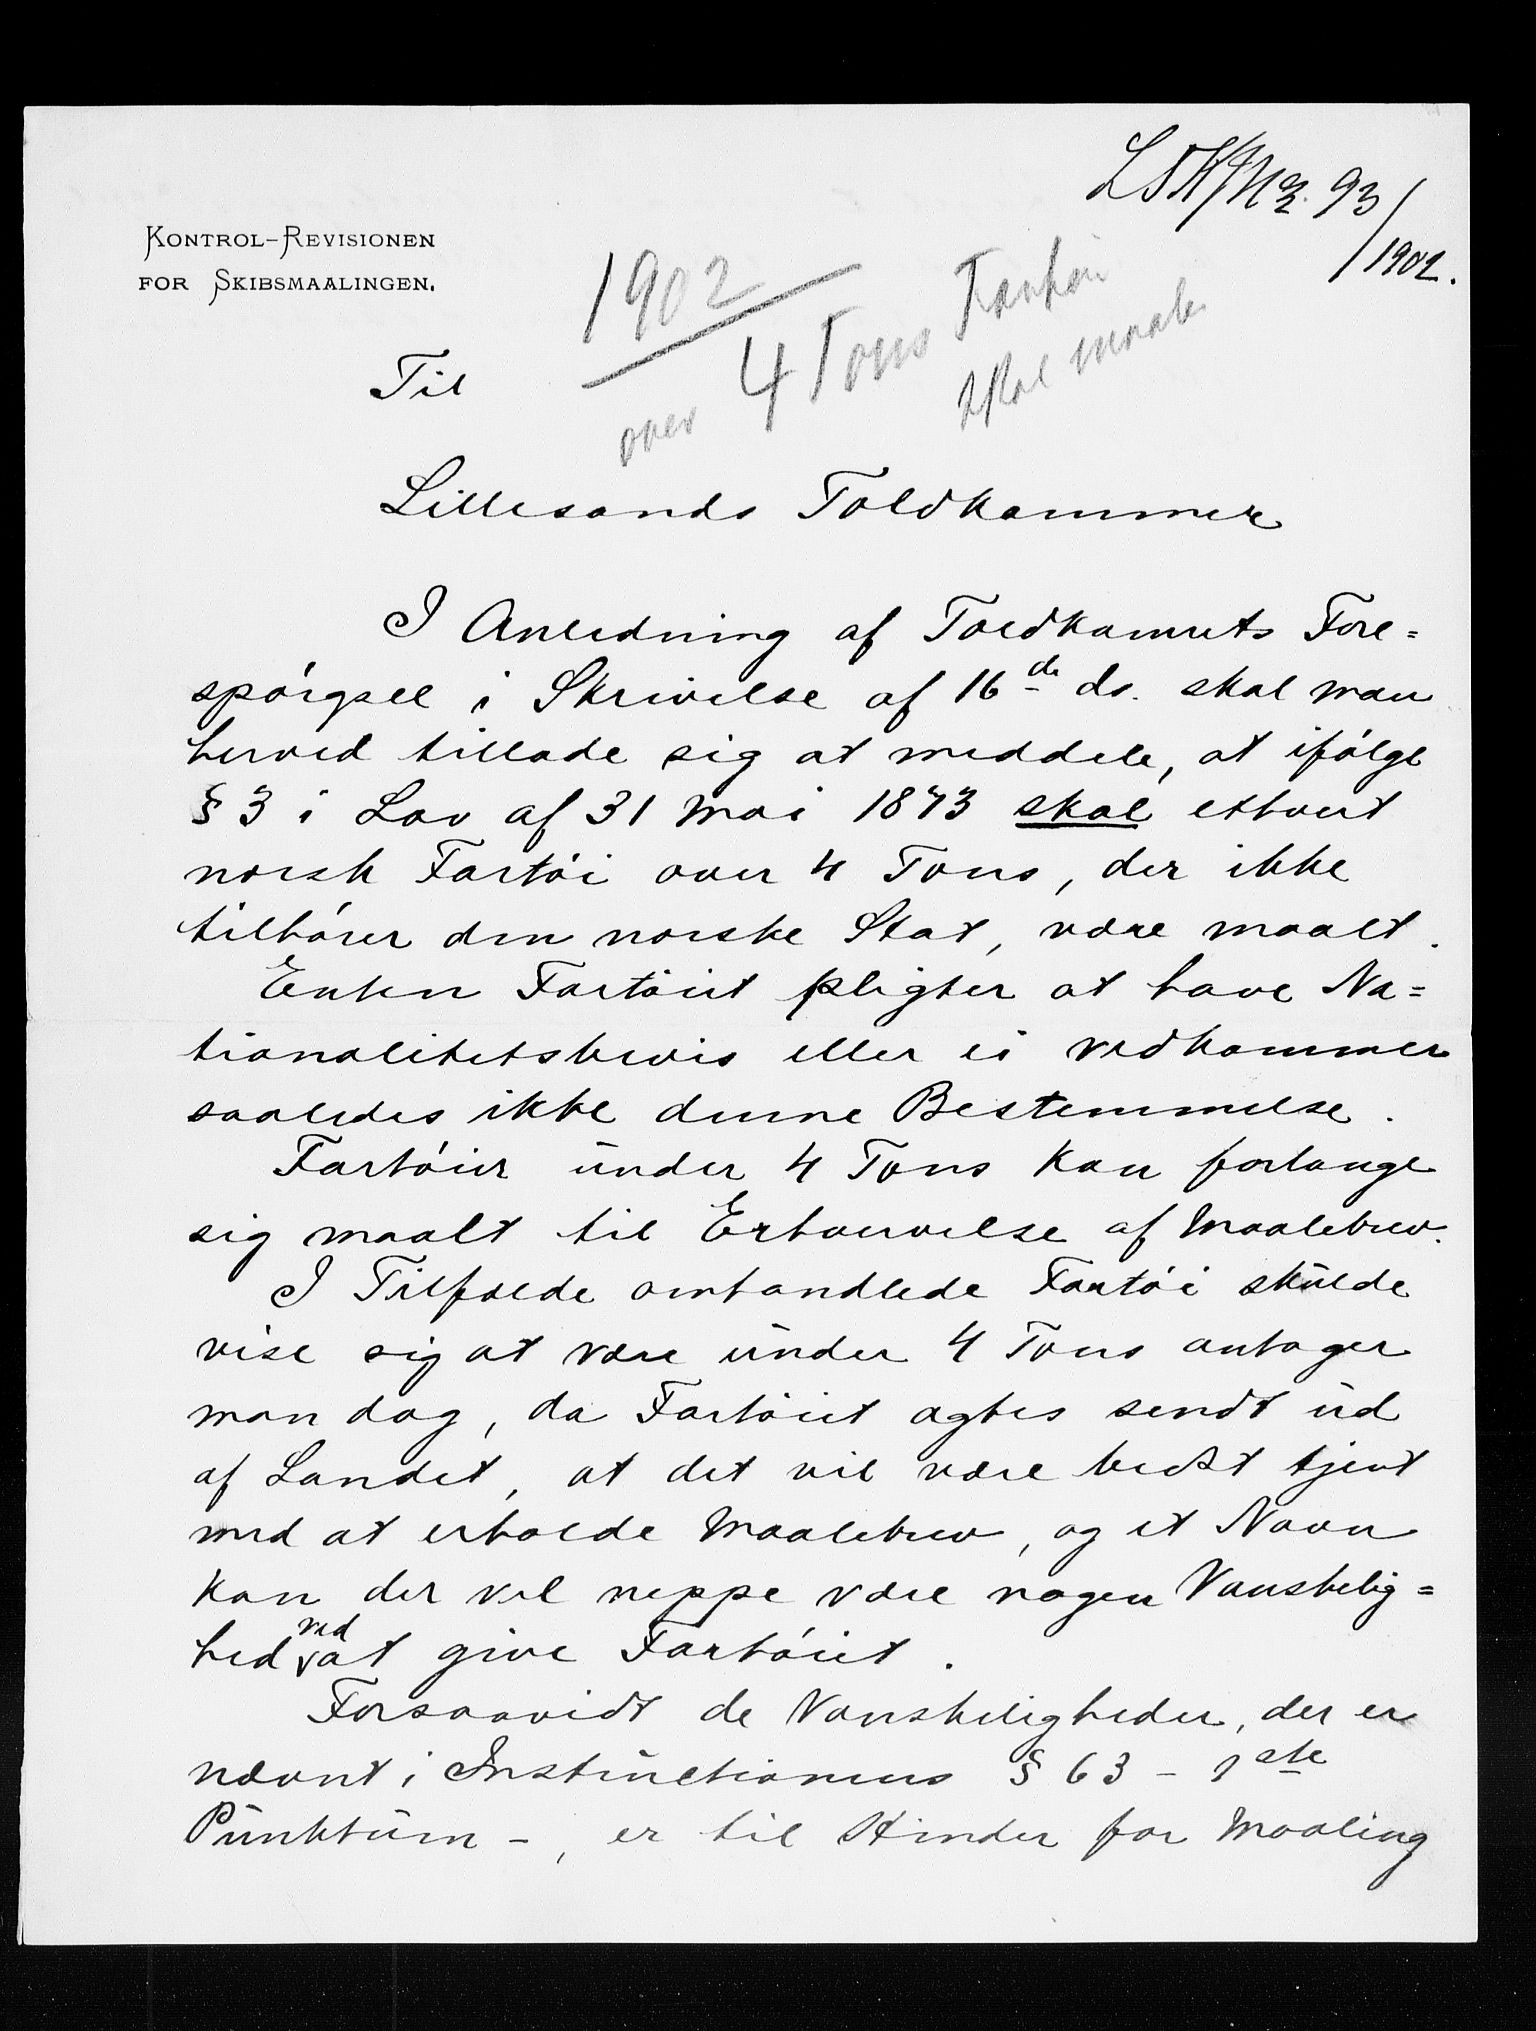 93/1902.
KONTROL-REVISIONEN
FOR SKIBSMAALINGEN.
1902
over 4 Tons Fartøi
skal maales
Til
Lillesands Toldkammer
I Anledning af Toldkamrets Fore=
spørgsel i Skrivelse af 16de ds. skal man
herved tillade sig at meddele, at ifølge
§ 3 i Lov af 31 Mai 1873 skal ethvert
norsk Fartøi over 4 Tons, der ikke
tilhører den norske Stat, være maalt.
Enten Fartøiet pligter at have Na=
tionalitetsbevis eller ei vedkommer
saaledes ikke denne Bestemmelse.
Fartøier under 4 Tons kan forlange
sig maalt til Erhvervelse af Maalebrev.
I Tilfælde omhandlede Fartøi skulde
vise sig at være under 4 Tons antager
man dog, da Fartøiet agtes sendt ud
af Landet, at det vil være bedst tjent
med at erholde Maalebrev, og et Navn
kan der vel neppe være nogen Vanskelig=
hed ved at give Fartøiet.
Forsaavidt de Vanskeligheder, der er
nævnt i Instructionens § 63 - 1ste
Punktum -, er til Hinder for Maaling